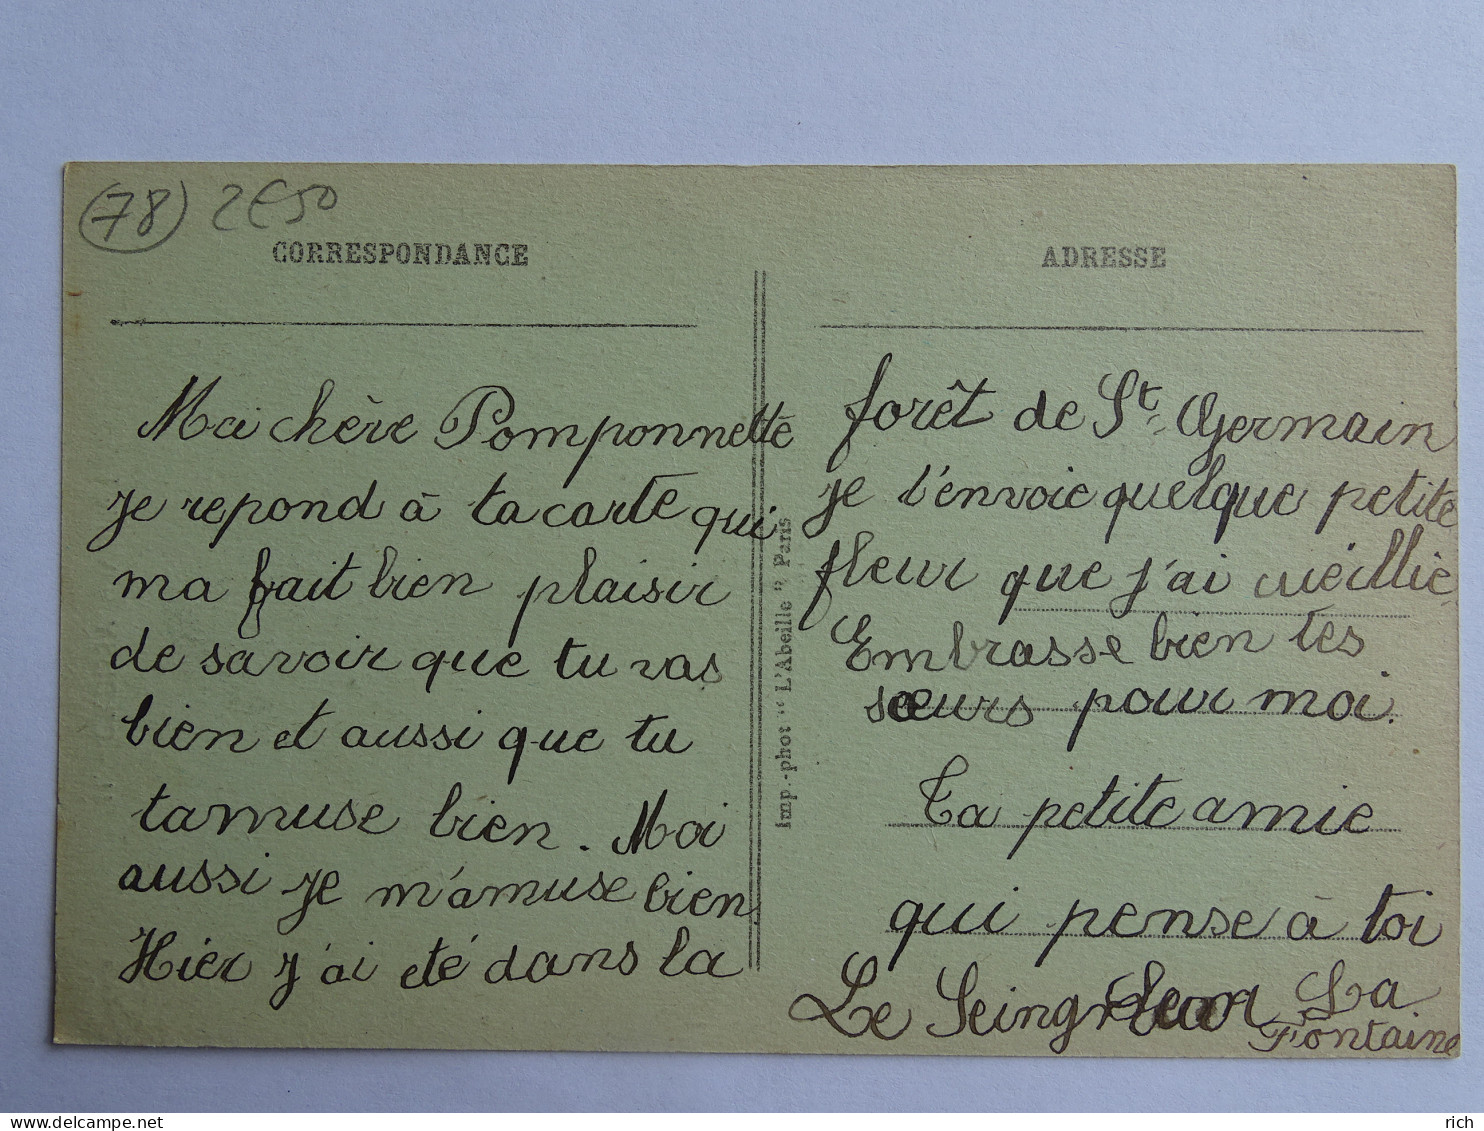 (78) 2€50
CORRESPONDANCE
Ma chère Pomponnette
je repond à ta carte qui
ma fait bien plaisir
de savoir que tu vas
bien et aussi que tu
tamuse bien. Moi
aussi je m'amuse bien
Hier j'ai eté dans la
Imp.-phot "L'Abeille" Paris
ADRESSE
forêt de St. Germain
je t'envoie quelque petite
fleur que j'ai cueillie.
Embrasse bien tes
sœurs pour moi.
Ta petite amie
qui pense à toi
Le La
Fontaine
delcampe.net
rich